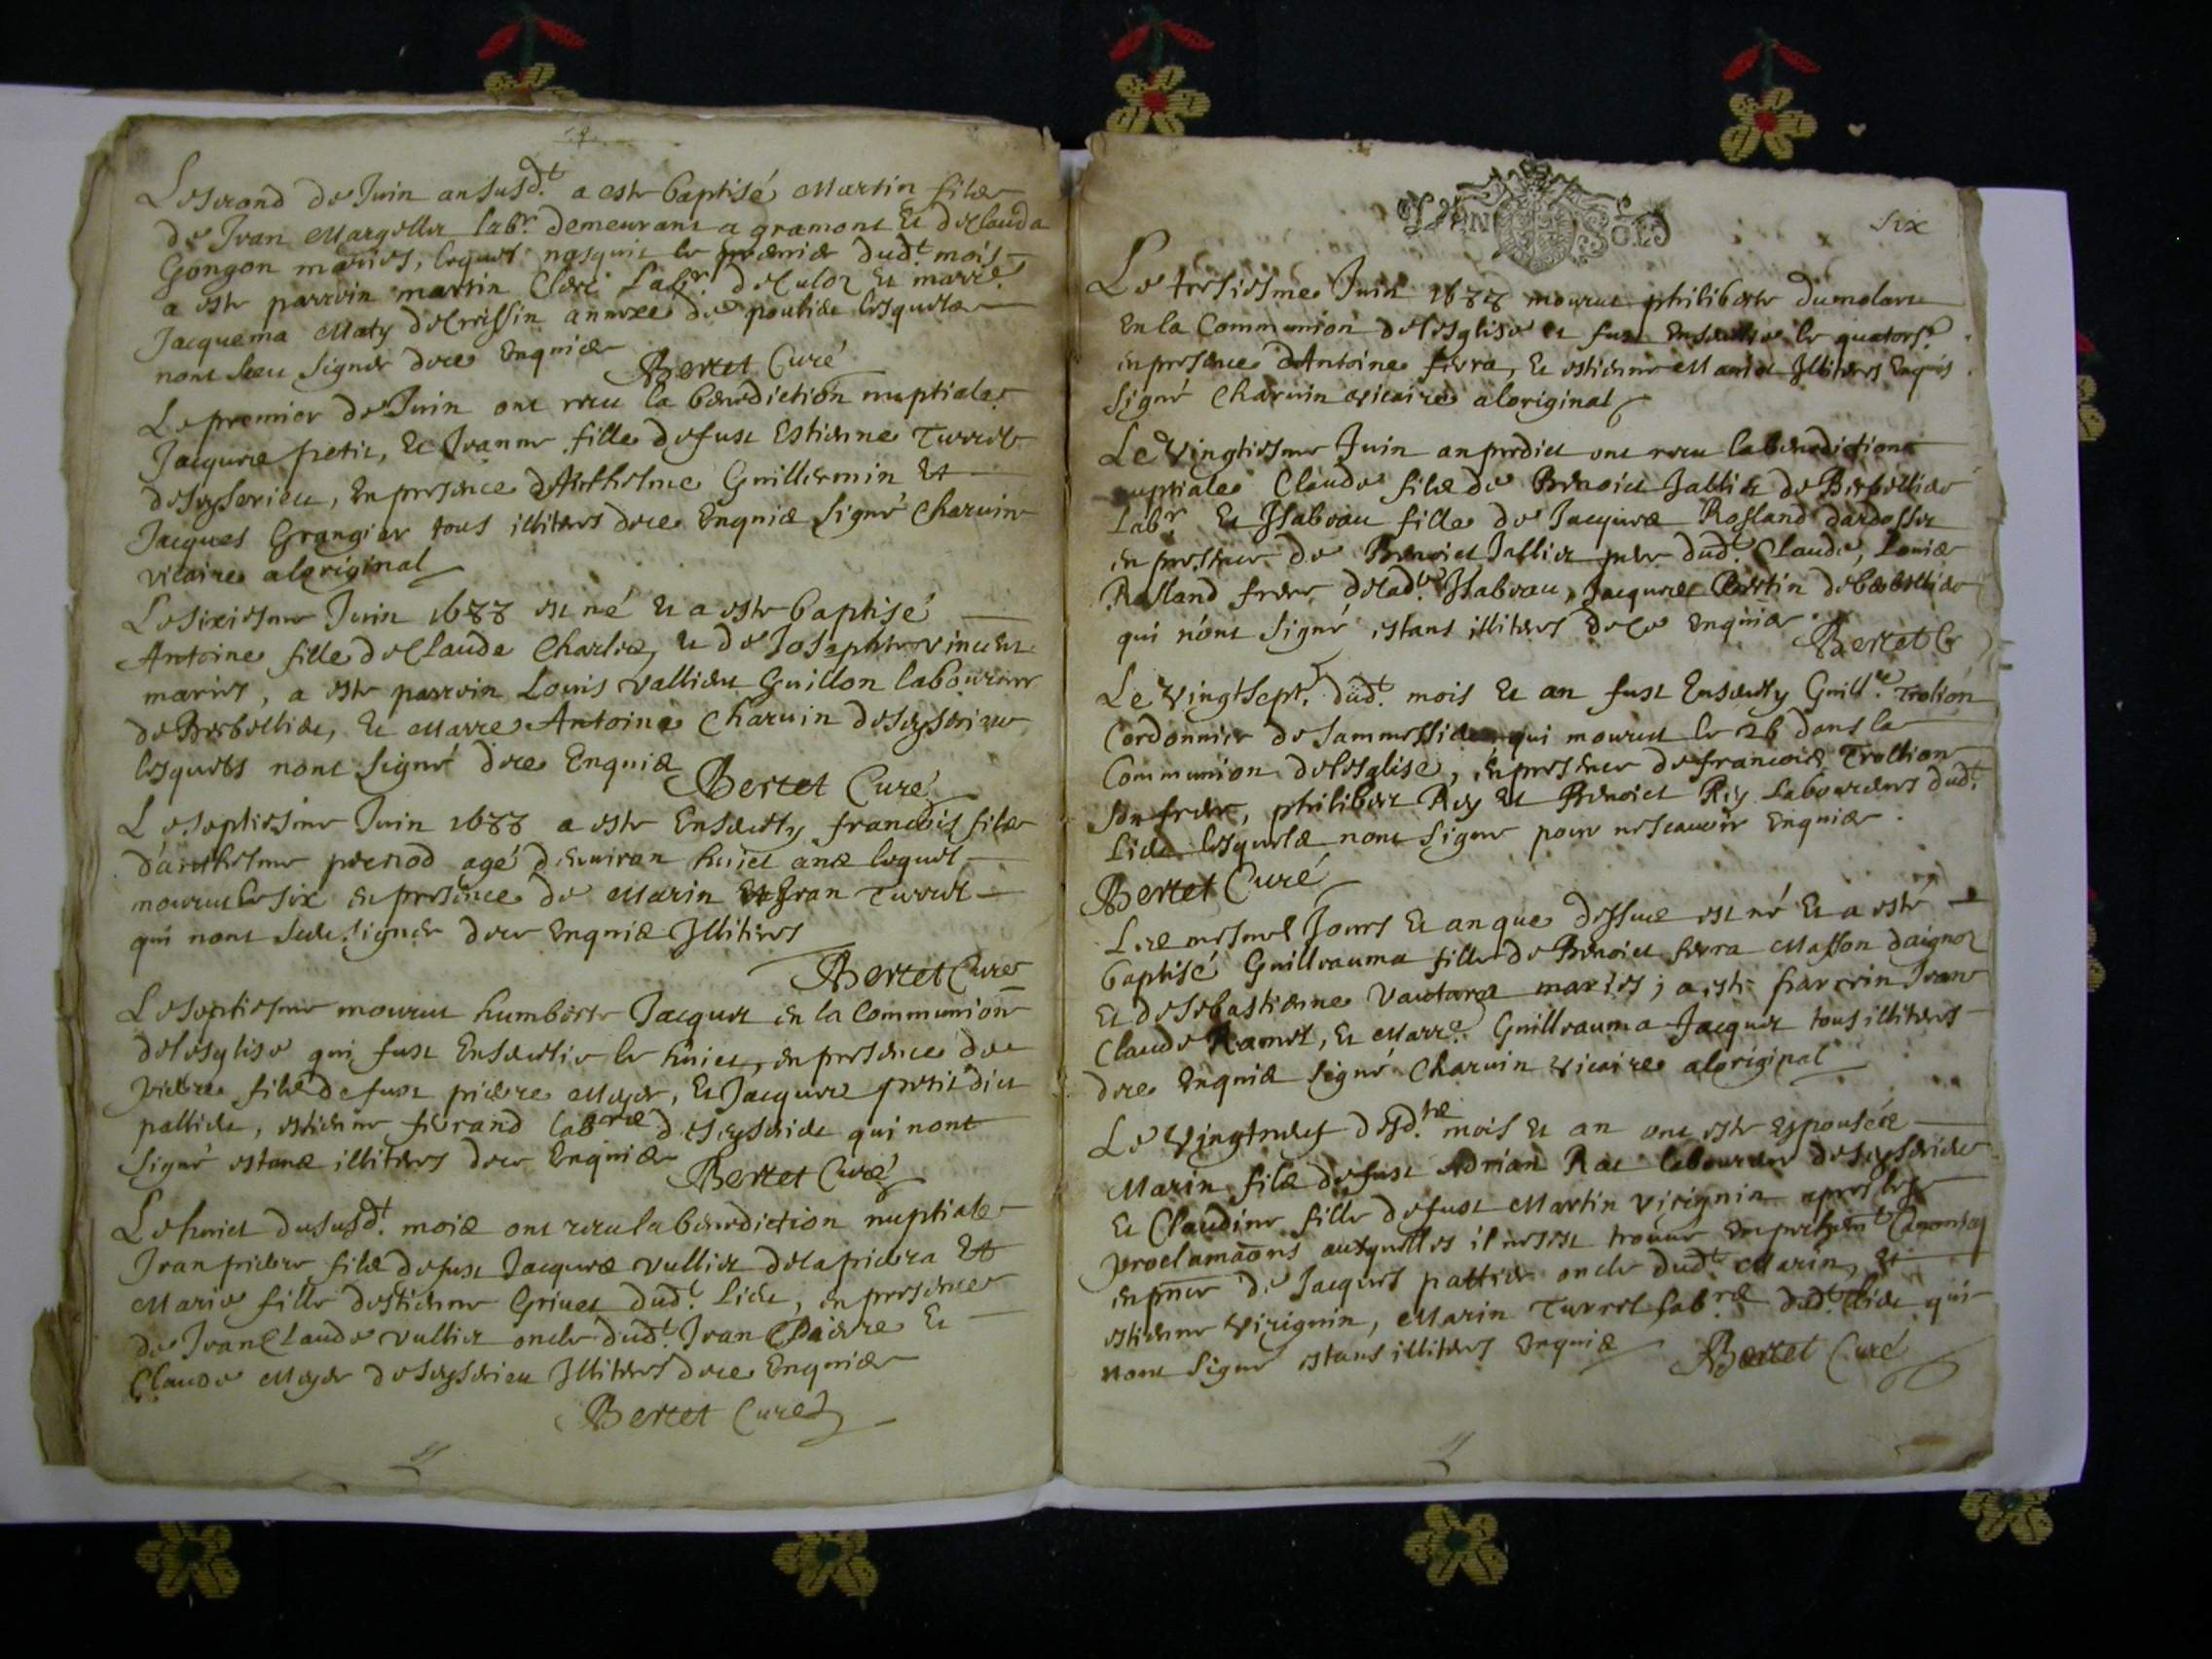 Le second de Juin an susd.t a este baptisé Martin filz
de Jean Margollier lab.r demeurant a gramont et de Clauda
Gongon mariés, lequel nasquit le premier dud.t mois
a este parrein martin Clerc Lab.r de Culoz et marr.e
Jacquema Maty de Cressin annexe de poulieu lesquelz
nont sceu signer de ce Enquis Bertet Curé
Le premier de Juin ont receu la benediction nuptiale
Jacques petit, Et Jeanne fille de fust Estienne Turrel
de seyserieu, En presence dAnthelme Guillermin Et
Jacques Grangier tous illiteres de ce Enquis signé Charuin
vicaire a loriginal
Le sixiesme Juin 1688 est né et a este baptisé
Antoine fille de Claude Charlin, et de Josephte vincent
mariés, a este parrein Louis vallieu Guillon laboureur
de Berbellieu, Et Marre Antoine Charuin de seyserieu
lesquels nont signé de ce Enquis Bertet Curé
Le septiesme Juin 1688 a este Ensevely francois filz
d'anthelme agé d'environ huict ans lequel
mourut le six en presence de Marin Et Jean Turrel
qui nont sceu signer de ce Enquis Illiteres
Bertet Curé
Le septiesme mourut humberte Jacquet en la Communion
de lesglise qui fust Ensevelie le huict, en presence de
pierre filz de fust pierre Meyer, Et Jacques petit dict
pallieu, estienne ferrand lab.rs de seyserieu qui nont
signé estans illiteres de ce Enquis
Bertet Curé
Le huict du susd.t mois ont receu la benediction nuptiale
Jean pierre filz de fust Jacques vullier de la pierra Et
Marie fille destienne Grivet dud.t Lieu, en presence
de Jean Claude vullier oncle dud.t Jean Pierre Et
Claude Meyer de seyserieu Illiteres de ce Enquis
Bertet Curé
UN SOL
Six
Le tresiesme Juin 1688 mourut philiberte dumolard
En la Communion de lesglise et fust Ensevelie le quators.e
en presence dAntoine ferra, Et estienne Illiteres Enquis
signé Charuin vicaire a loriginal
Le Vingtiesme Juin an predict ont receu la benediction
nuptiale Claude filz de Benoict Jallier de Berbellieu
Lab.r Et Isabeau fille de Jacques Rosland dardossier
en presence de Benoict Jallier pere dud.t Claude, Louis
Rosland frere de lad.te Isabeau, Jacques Bertin de berbellieu
qui n'ont signé estans illiteres de ce Enquis
Bertet C
Le Vingtsept. dud.t mois Et an fust Ensevely Guill.e Trolion
Cordonnier de qui mourut le 26 dans la
Communion de lesglise, en presence de francois Trollion
son frere, philibert Rey Et Benoict Rey Laboureurs dud.t
Lieu lesquelz nont signé pour ne scauoir Enquis.
Bertet Curé
Les mesmes Jours Et an que dessus est né Et a esté
baptisé Guilleauma fille de Benoict ferra Masson daignoz
Et de sebastienne Vautare mariés; a esté parrein Jean
Claude Ramel, Et Marr.e Guilleauma Jacquet tous illiteres
de ce Enquis signé Charuin vicaire a loriginal
Le Vingtneuf desd.ts mois Et an ont este Espousés
Marin filz de fust Adrian Rat laboureur de seyserieu
Et Claudine fille de fust Martin virignin apres les
proclamaōns auxquelles il ne sest trouué Canonicq
en pnce de Jacques pallier oncle dud.t Marin, Et
estienne Virignin, Marin Turrel lab.rs dud.t lieu qui
nont signé estans illiteres Enquis Bertet Curé